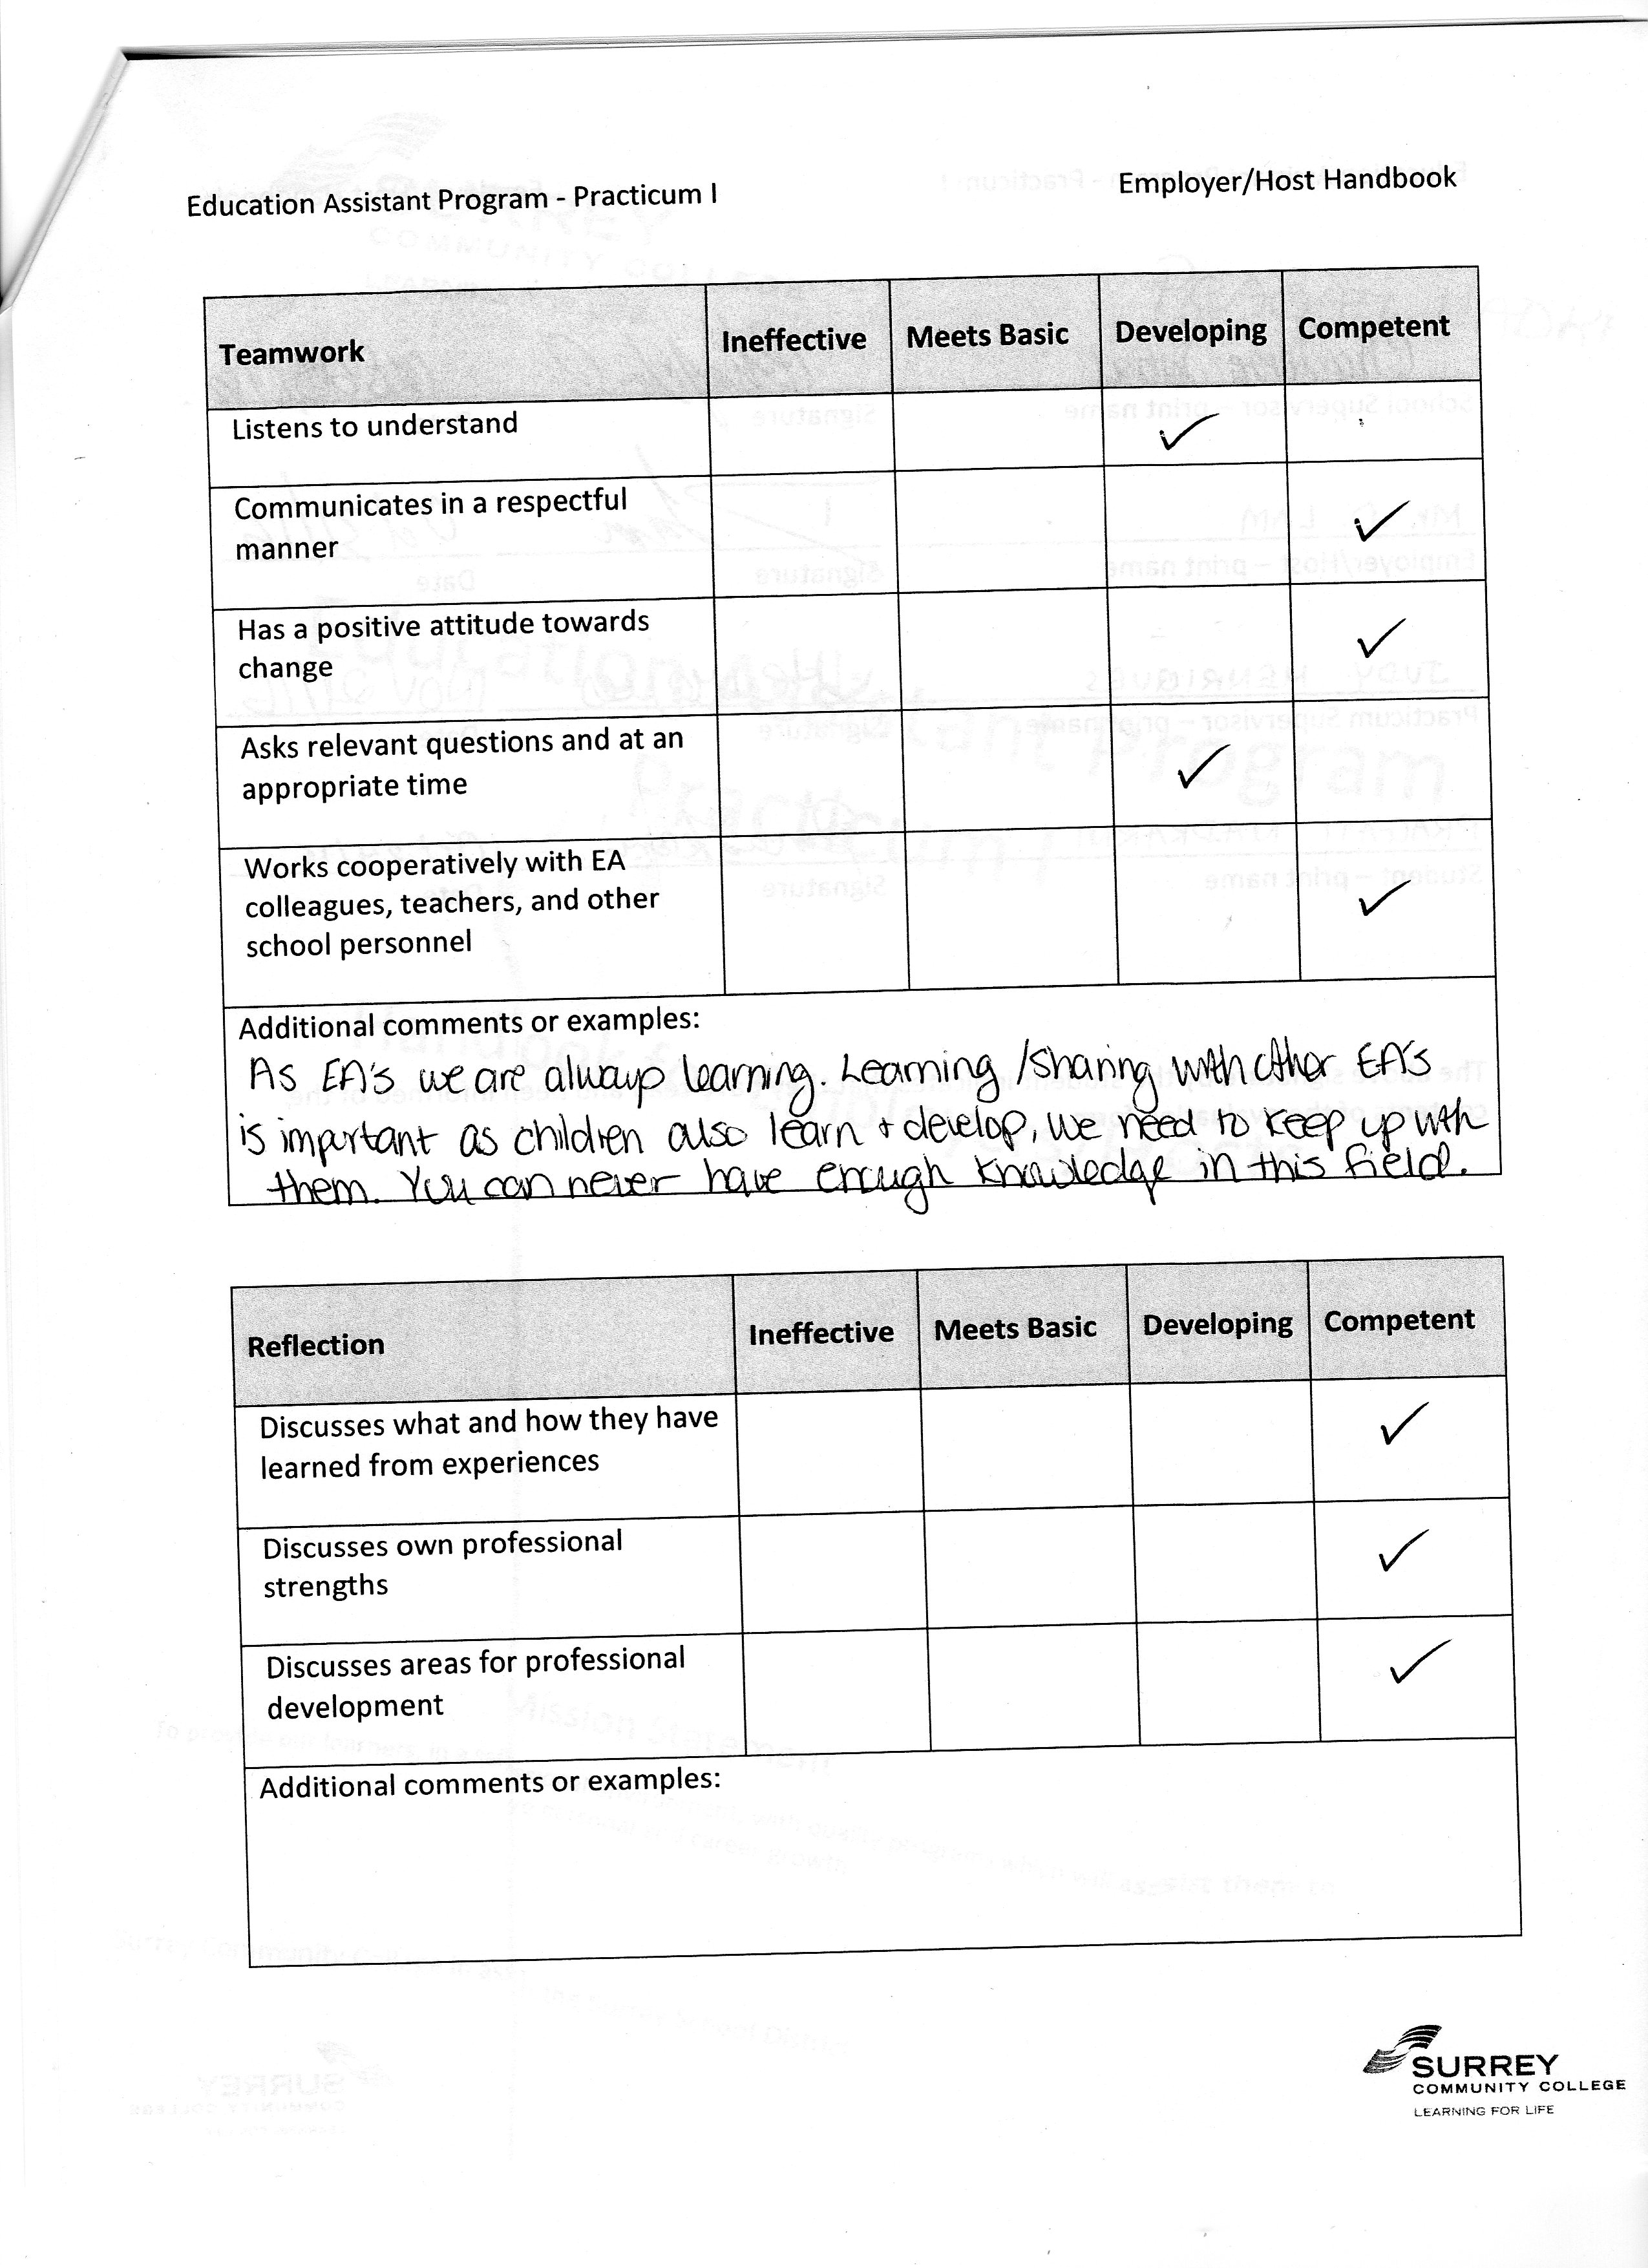 Education Assistant Program - Practicum I
Employer/Host Handbook
Teamwork Ineffective Meets Basic Developing Competent
Listens to understand ✓
Communicates in a respectful
manner ✓
Has a positive attitude towards
change ✓
Asks relevant questions and at an
appropriate time ✓
Works cooperatively with EA
colleagues, teachers, and other
school personnel ✓
Additional comments or examples:
As EA's we are always learning. Learning /sharing with other EA's
is important as children also learn + develop, we need to keep up with
them. You can never have enough knowledge in this field.
Reflection Ineffective Meets Basic Developing Competent
Discusses what and how they have
learned from experiences ✓
Discusses own professional
strengths ✓
Discusses areas for professional
development ✓
Additional comments or examples:
SURREY
COMMUNITY COLLEGE
LEARNING FOR LIFE